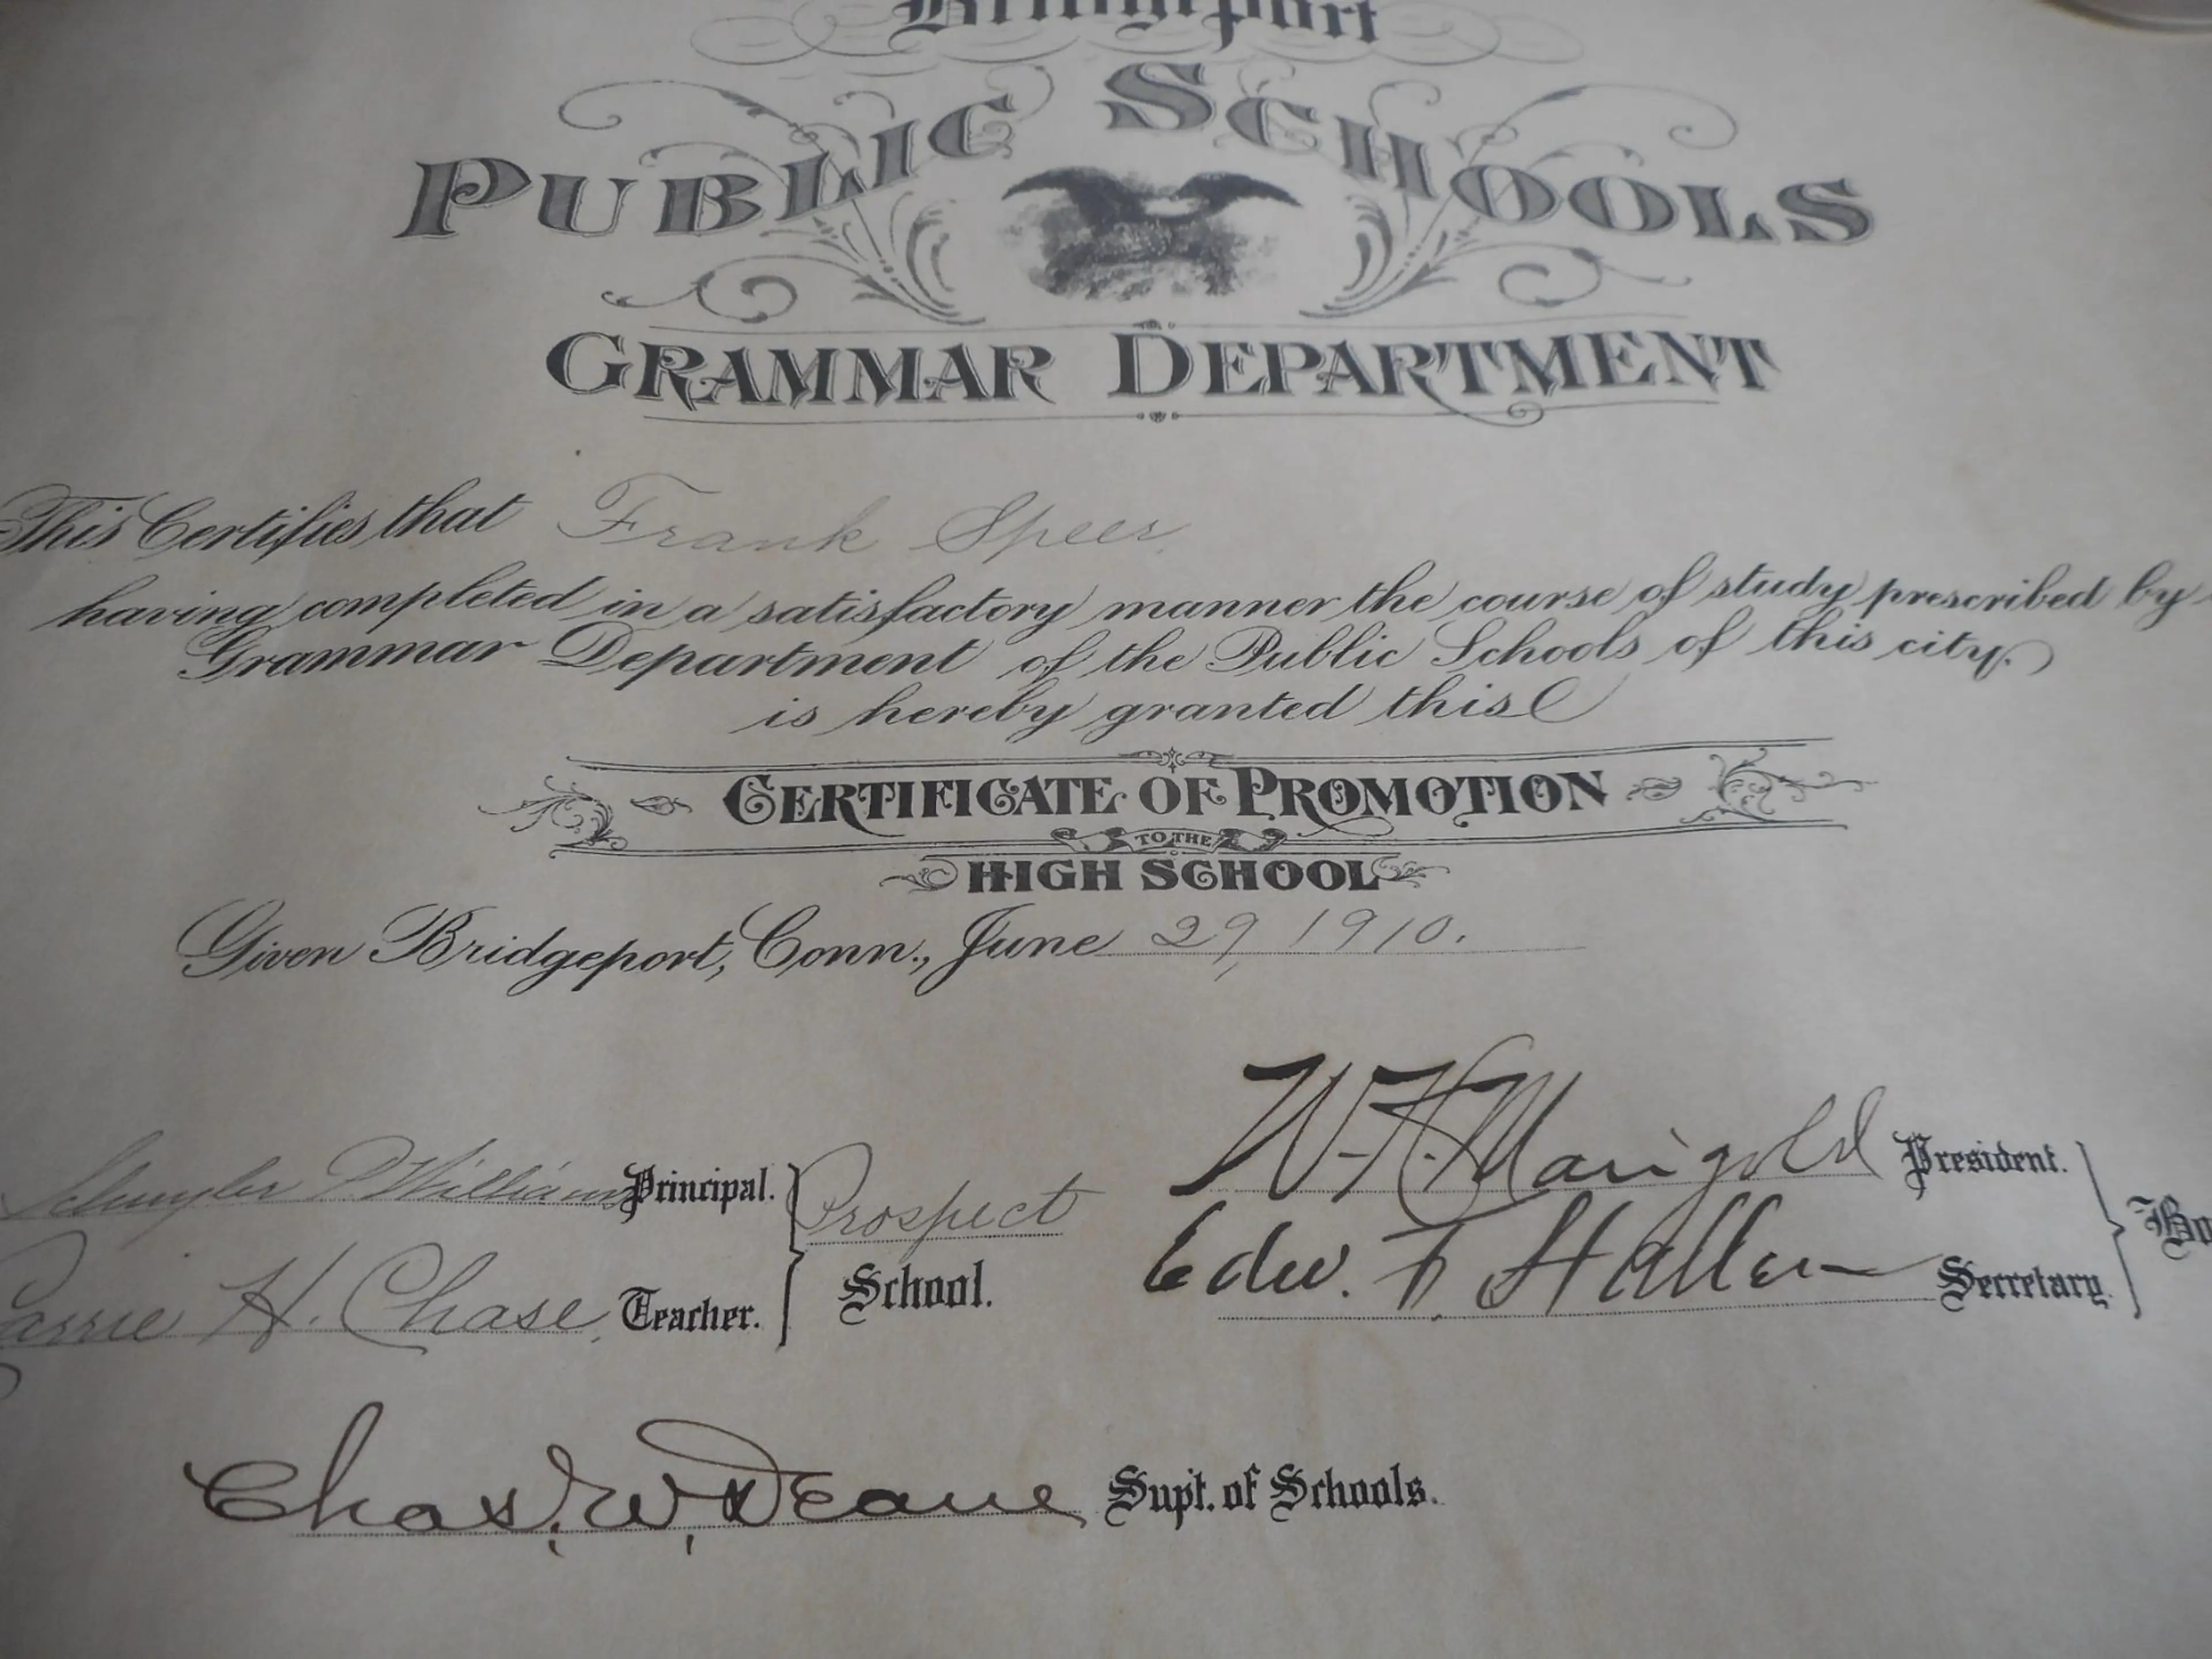 Bridgeport
PUBLIC SCHOOLS
GRAMMAR DEPARTMENT
This Certifies that Frank Speer
having completed in a satisfactory manner the course of study prescribed by
Grammar Department of the Public Schools of this city.
is hereby granted this
CERTIFICATE OF PROMOTION
TO THE
HIGH SCHOOL
Given Bridgeport, Conn., June 29, 1910.
Schuyler P. Williams Principal.
Carrie H. Chase, Teacher.
Prospect
School.
W. H. Marigold President.
Edw. F. Hallen Secretary.
Bo
Chas. W. Deane Supt. of Schools.